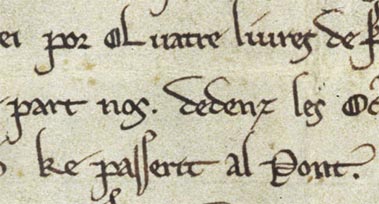 ei por Quatre liures de
part nos. dedenz les
ke passerit al Pont.